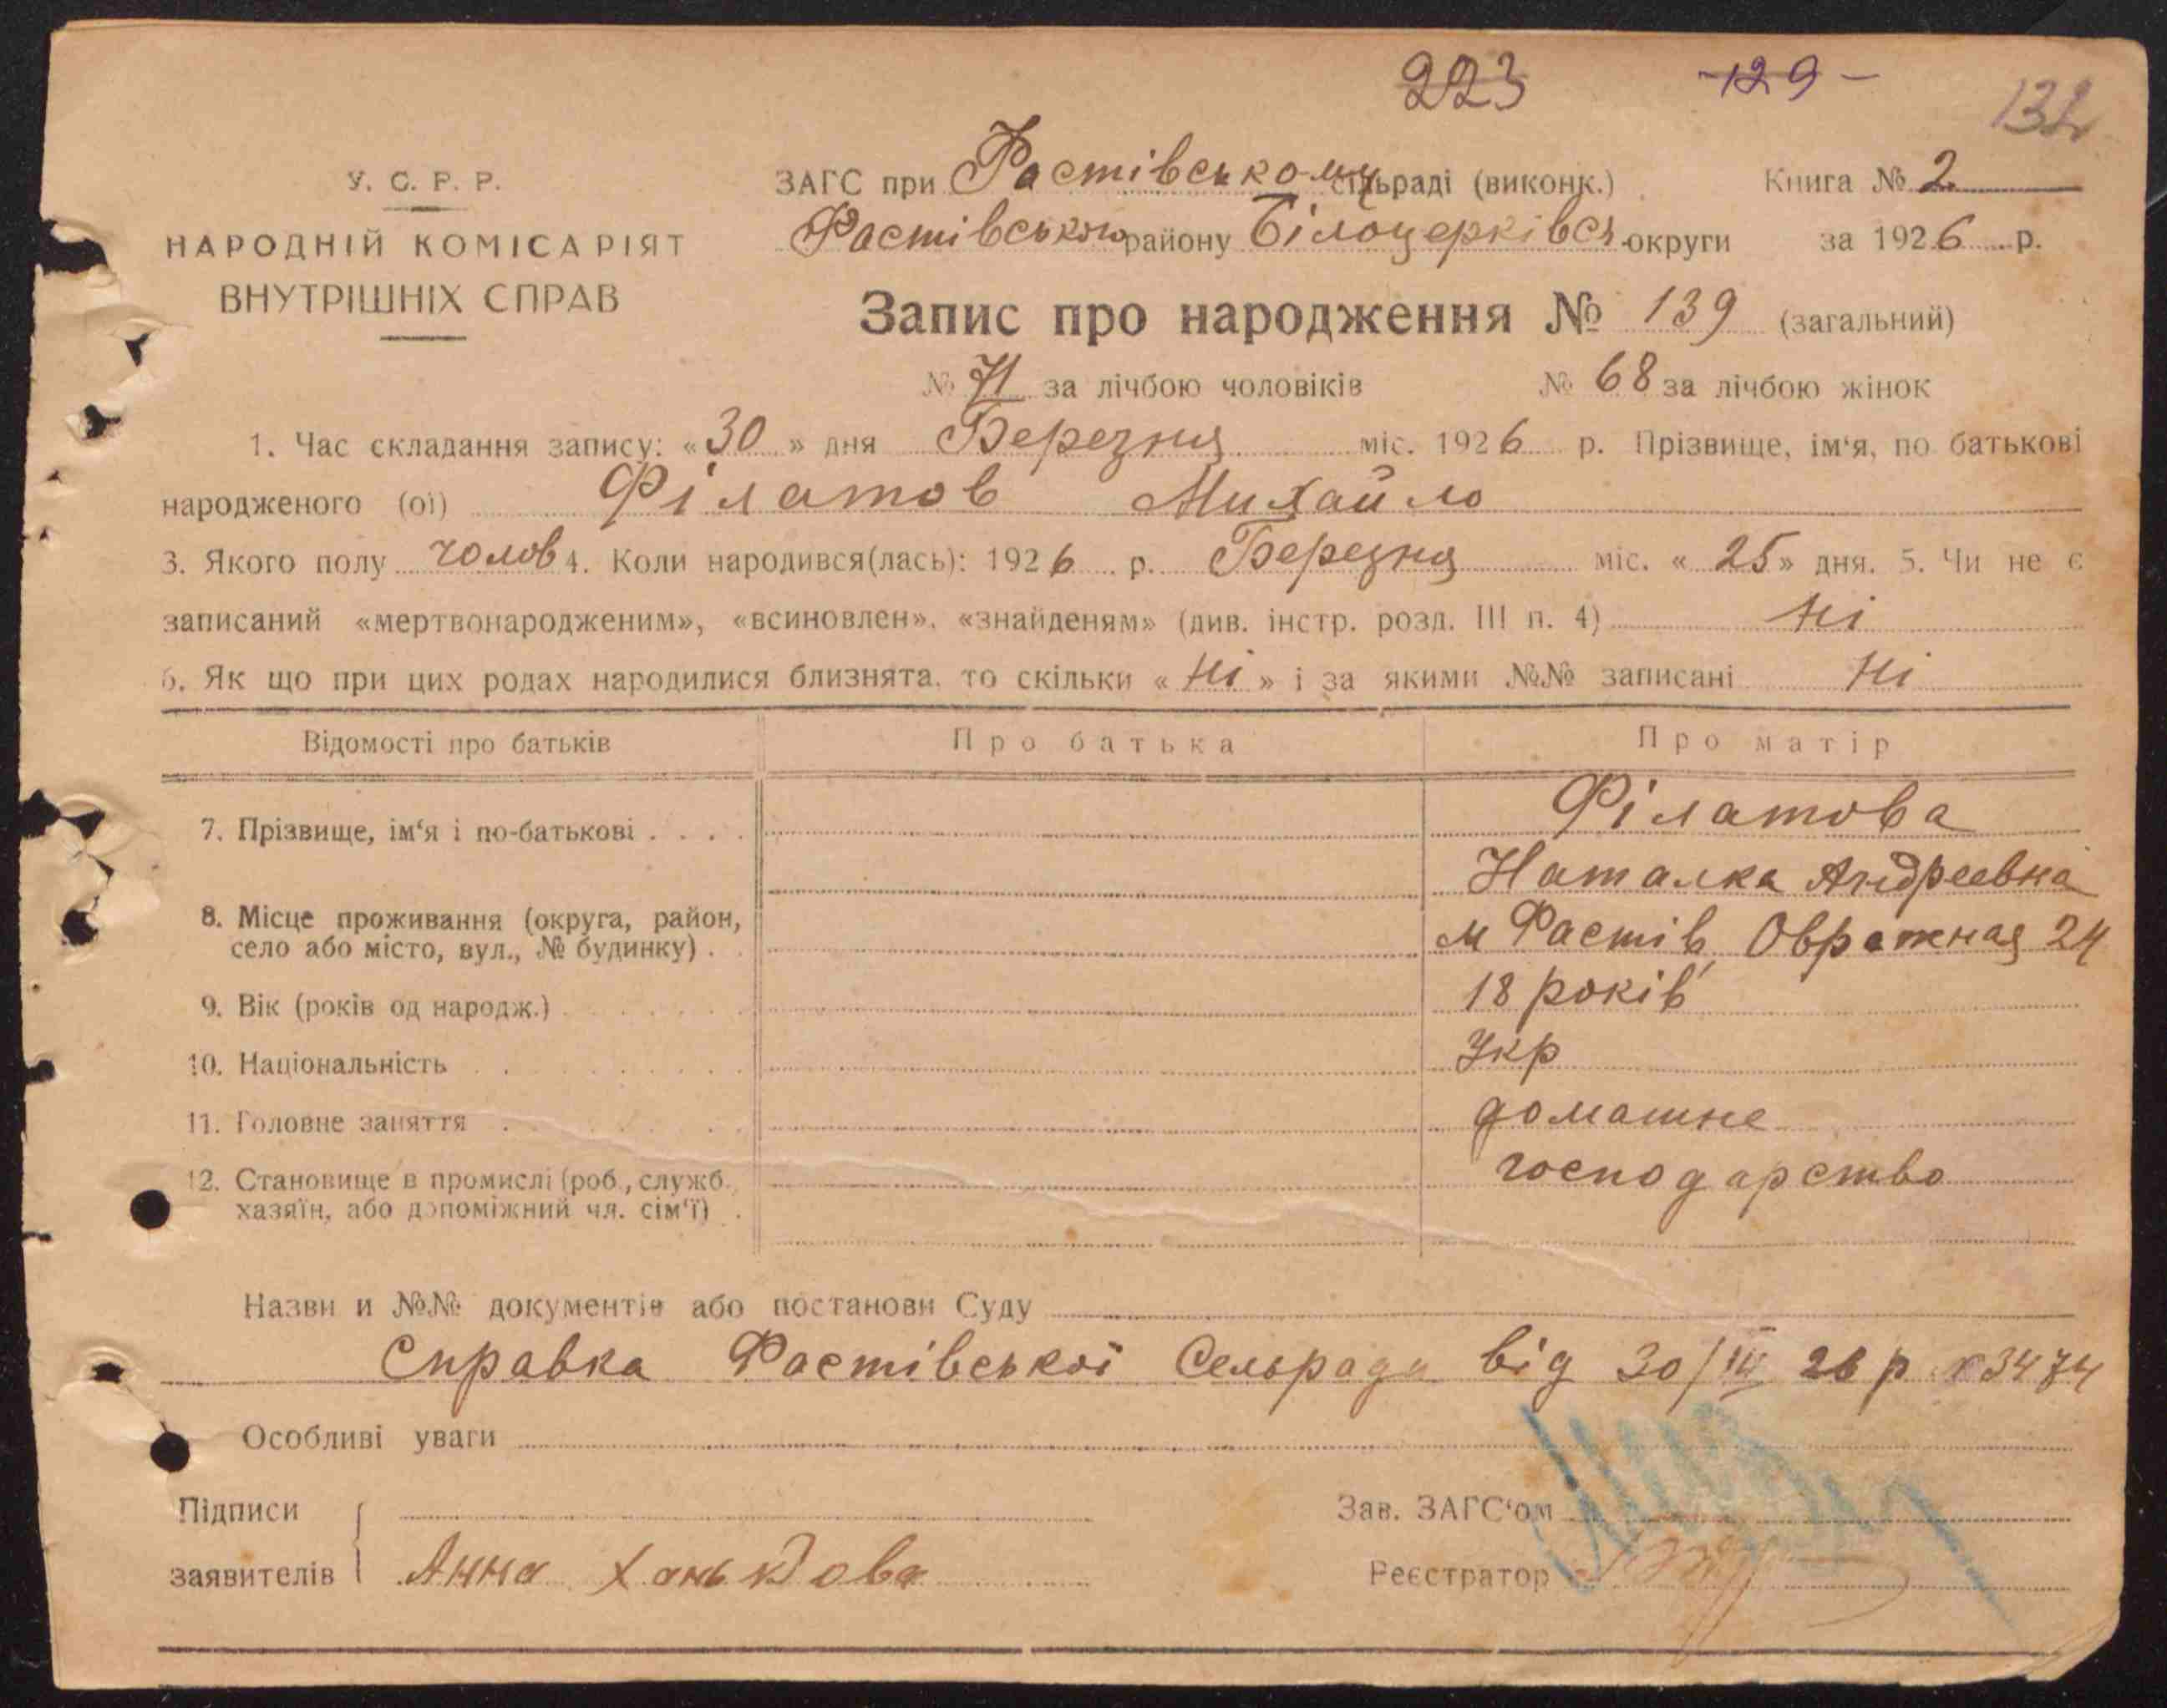 223 -129- 132
У. С. Р. Р.
НАРОДНІЙ КОМІСАРІЯТ
ВНУТРІШНІХ СПРАВ
ЗАГС при Фастівському сільраді (виконк.) Книга № 2
Фастівського району Білоцерківськ округи за 1926 р.
Запис про народження № 139 (загальний)
№ 71 за лічбою чоловіків № 68 за лічбою жінок
1. Час складання запису: «30» дня Березня міс. 1926 р. Прізвище, ім‘я, по батькові
народженого (ої) Філатов Михайло
3. Якого полу чолов 4. Коли народився(лась): 1926 р. Березня міс. «25» дня. 5. Чи не є
записаний «мертвонародженим», «всиновлен», «знайденям» (див. інстр. розд. III п. 4) Ні
6. Як що при цих родах народилися близнята, то скільки «Ні» і за якими №№ записані Ні
Відомості про батьків Про батька Про матір
7. Прізвище, ім‘я і по-батькові . . . . Філатова
Наталка Андреевна
8. Місце проживання (округа, район,
село або місто, вул., № будинку) . м Фастів, Овражная 24
9. Вік (років од народж.) 18 років
10. Національність Укр
11. Головне заняття домашне
12. Становище в промислі (роб., служб.,
хазяїн, або допоміжний чл. сім‘ї) . господарство
Назви и №№ документів або постанови Суду
Справка Фастівської Сельради від 30/III 26 р № 3474
Особливі уваги
Підписи
заявителів Анна
Зав. ЗАГС‘ом
Реєстратор